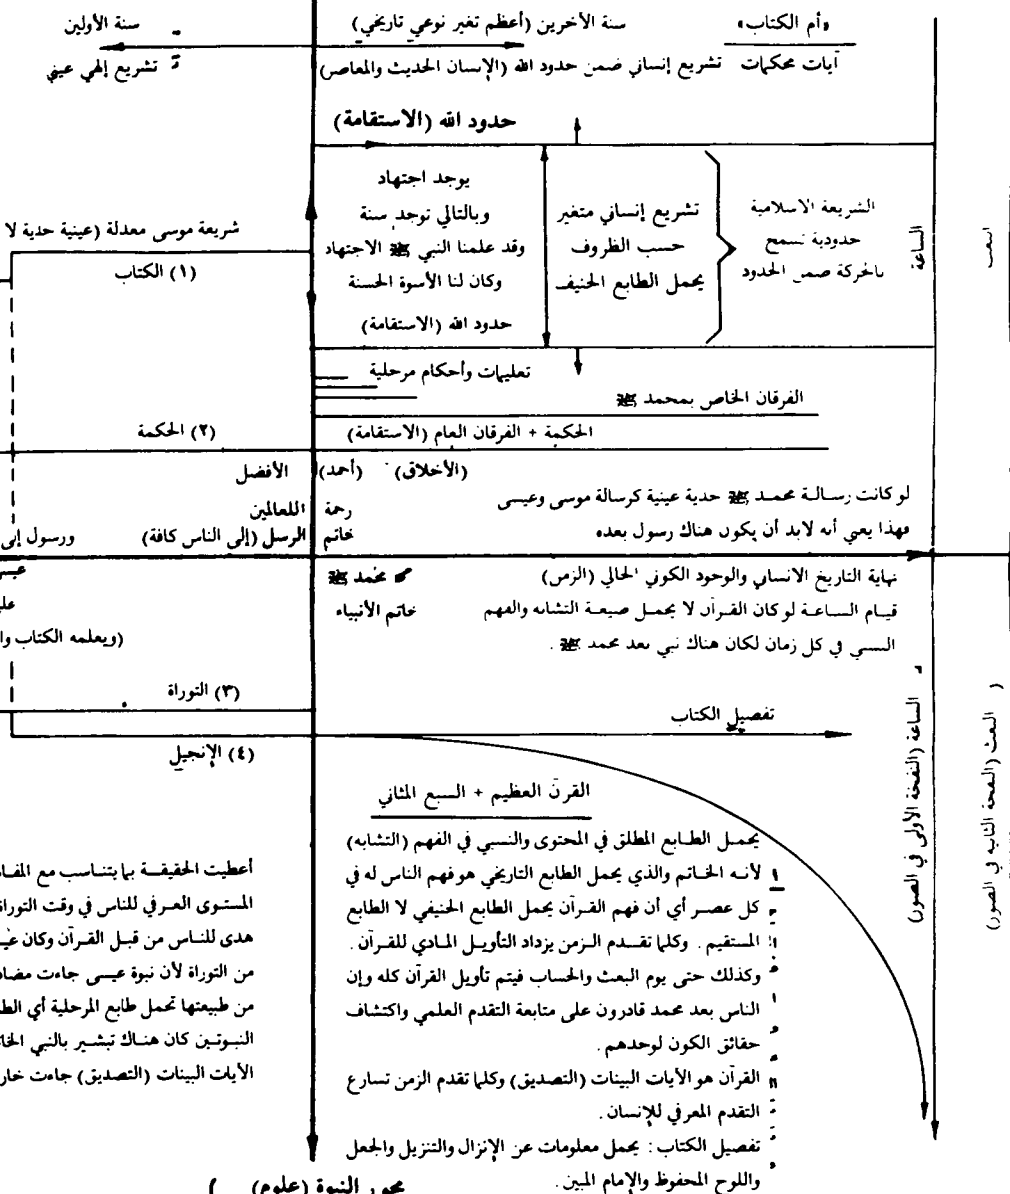 «أم الكتاب»
سنة الآخرين (أعظم تغير نوعي تاريخي)
سنة الأولين
آيات محكمات
تشريع إنساني ضمن حدود الله (الإنسان الحديث والمعاصر)
تشريع إلهي عيني
حدود الله (الاستقامة)
الشريعة الاسلامية
حدودية تسمح
بالحركة ضمن الحدود
تشريع إنساني متغير
حسب الظروف
يحمل الطابع الحنيف
يوجد اجتهاد
وبالتالي توجد سنة
وقد علمنا النبي ﷺ الاجتهاد
وكان لنا الأسوة الحسنة
حدود الله (الاستقامة)
شريعة موسى معدلة (عينية حدية لا
(١) الكتاب
الساعة
البعث
تعليمات وأحكام مرحلية
الفرقان الخاص بمحمد ﷺ
الحكمة + الفرقان العام (الاستقامة)
(٢) الحكمة
(الأخلاق) (أحمد) الأفضل
لو كانت رسالة محمد ﷺ حدية عينية كرسالة موسى وعيسى
فهذا يعني أنه لابد أن يكون هناك رسول بعده
رحمة اللعالمين
خاتم الرسل (إلى الناس كافة)
ورسول إلى
نهاية التاريخ الانساني والوجود الكوني الحالي (الزمن)
قيام الساعة لو كان القرآن لا يحمل صيغة التشابه والفهم
النسبي في كل زمان لكان هناك نبي بعد محمد ﷺ .
محمد ﷺ
خاتم الأنبياء
(ويعلمه الكتاب وا
(٣) التوراة
تفصيل الكتاب
(٤) الإنجيل
الساعة (النفخة الأولى في الصور)
البعث (النفخة الثانية في الصور)
القرآن العظيم + السبع المثاني
يحمل الطابع المطلق في المحتوى والنسبي في الفهم (التشابه)
لأنه الخاتم والذي يحمل الطابع التاريخي هو فهم الناس له في
كل عصر أي أن فهم القرآن يحمل الطابع الحنيفي لا الطابع
المستقيم . وكلما تقدم الزمن يزداد التأويل المادي للقرآن .
وكذلك حتى يوم البعث والحساب فيتم تأويل القرآن كله وإن
الناس بعد محمد قادرون على متابعة التقدم العلمي واكتشاف
حقائق الكون لوحدهم .
القرآن هو الآيات البينات (التصديق) وكلما تقدم الزمن تسارع
التقدم المعرفي للإنسان .
تفصيل الكتاب : يحمل معلومات عن الإنزال والتنزيل والجعل
واللوح المحفوظ والإمام المبين .
أعطيت الحقيقة بما يتناسب مع المفا
المستوى العرفي للناس في وقت التوراة
هدى للناس من قبل القرآن وكان عي
من التوراة لأن نبوة عيسى جاءت مضا
من طبيعتها تحمل طابع المرحلية أي الط
النبوتين كان هناك تبشير بالنبي الخا
الآيات البينات (التصديق) جاءت خار
محور النبوة (علوم)